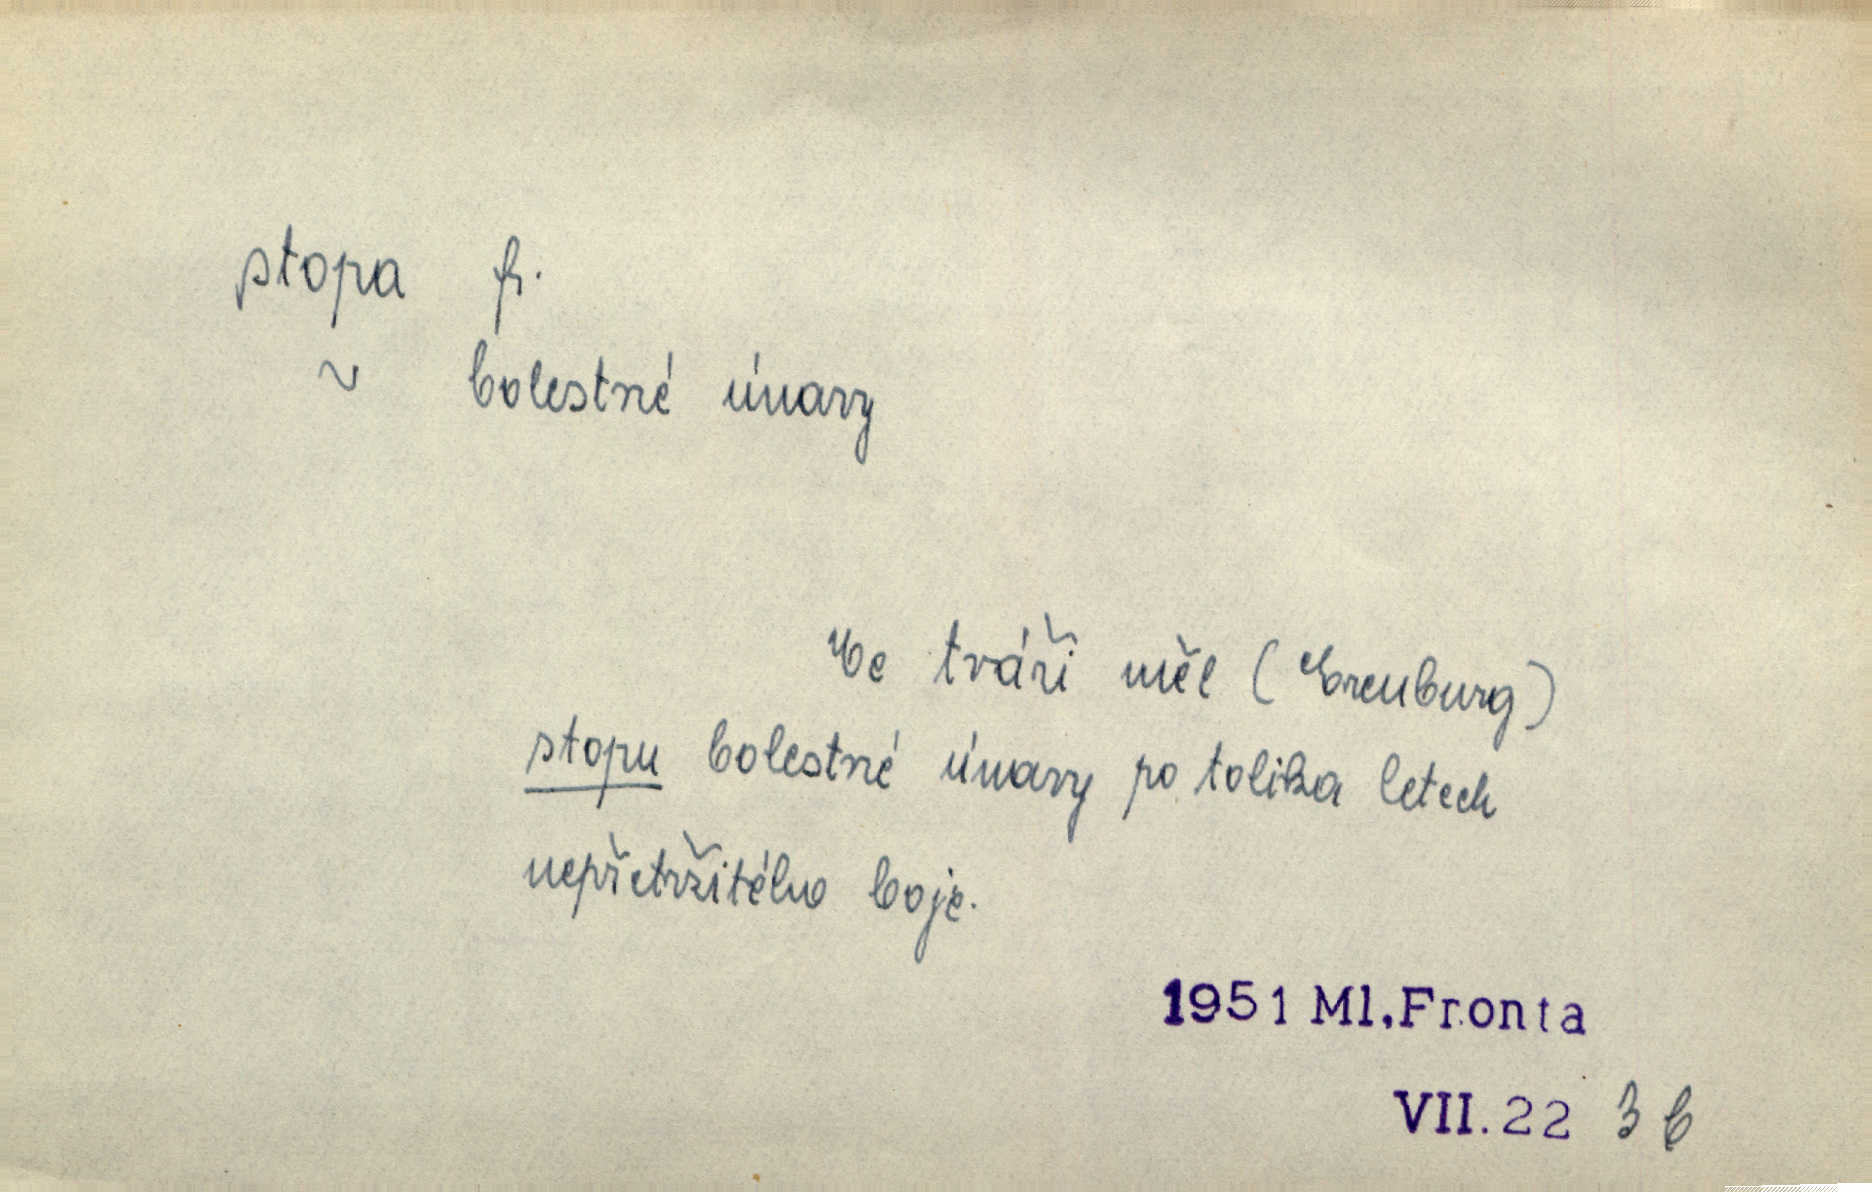 stopa fr.
~ bolestné únavy
Ve tváři měl (Erenburg)
stopu bolestné únavy po tolika letech
nepřetržitého boje.
1951 Ml.Fronta
VII.22 3 b